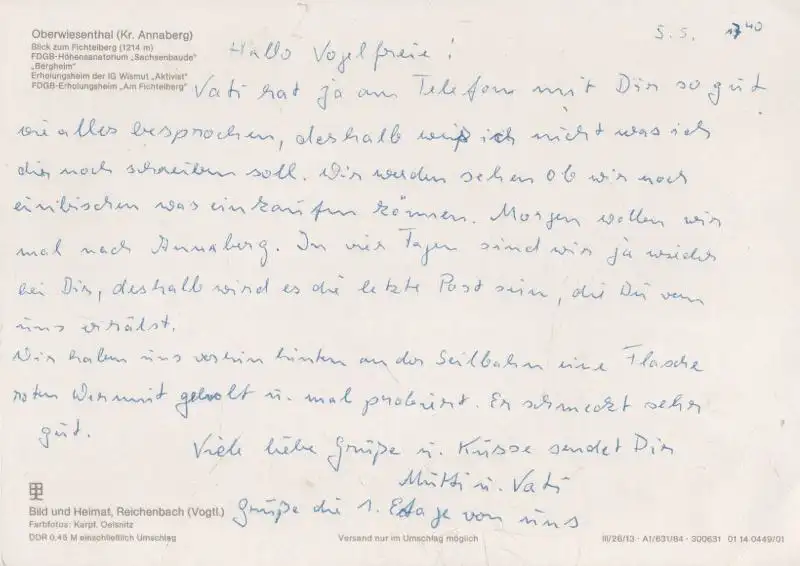 Oberwiesenthal (Kr. Annaberg)
Blick zum Fichtelberg (1214 m)
FDGB-Höhensanatorium „Sachsenbaude“
„Bergheim“
Erholungsheim der IG Wismut „Aktivist“
FDGB-Erholungsheim „Am Fichtelberg“
5.5. 17⁴⁰
Hallo Vogelfreie!
Vati hat ja am Telefon mit Dir so gut
wie alles besprochen, deshalb weiß ich nicht was ich
dir noch schreiben soll. Wir werden sehen ob wir noch
einbischen was einkaufen können. Morgen wollen wir
mal nach Annaberg. In vier Tagen sind wir ja wieder
bei Dir, deshalb wird es die letzte Post sein, die Du von
uns erhälst.
Wir haben uns vorhin hinten an der Seilbahn eine Flasche
roten Wermut geholt u. mal probiert. Er schmeckt sehr
gut.
Viele liebe Grüße u. Küsse sendet Dir
Mutti u. Vati
Grüße die 1. Etage von uns
Bild und Heimat, Reichenbach (Vogtl.)
Farbfotos: Karpf, Oelsnitz
DDR 0,45 M einschließlich Umschlag
Versand nur im Umschlag möglich
III/26/13 · A1/631/84 · 300631 01 14 0449/01